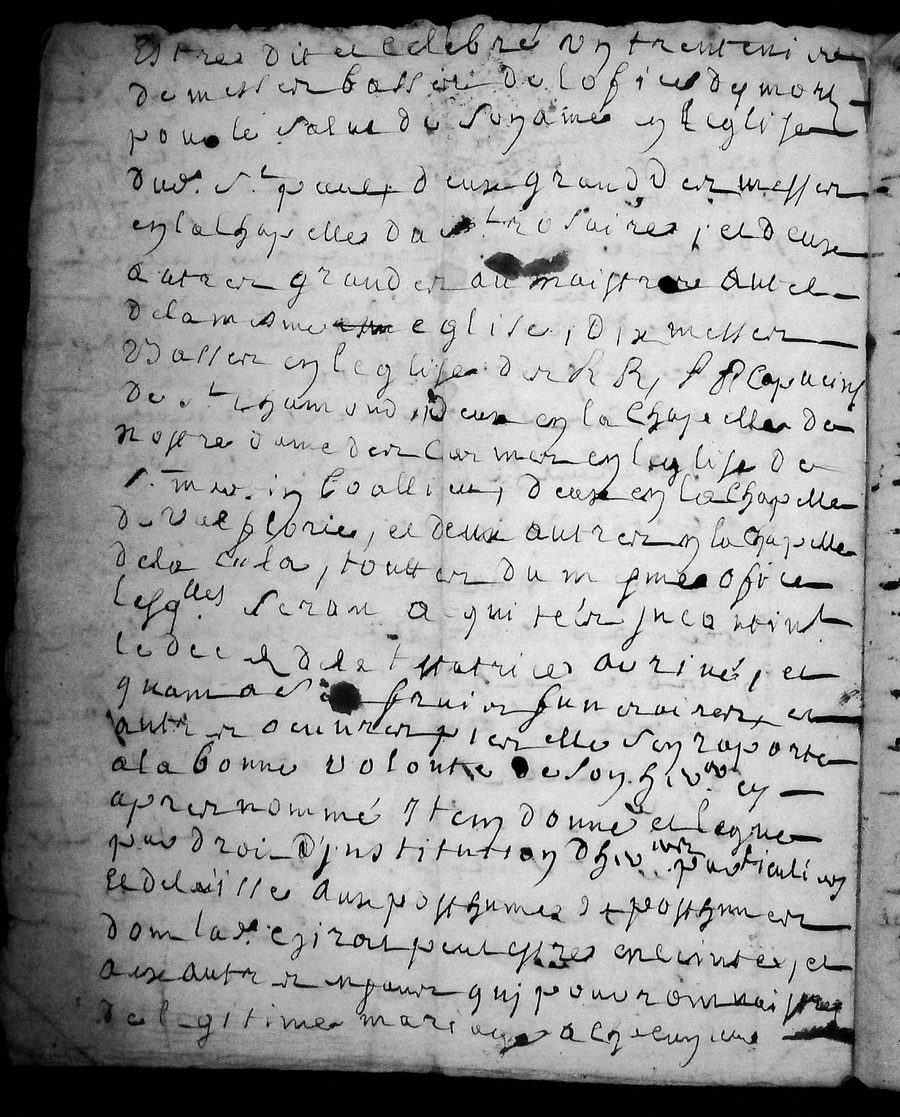 Estre dit et celebré un trentenire
de messes basses de lofice dy mort
pour le salut de son ame en leglise
dud. St paul, deux grandes messes
en la Chapelle du St rosaire, et deux
autres grandes au maistre autel
de la mesme eglise, dix messes
Basses en leglise des R R, P P Capucins
de St Chamond, deux en la Chapelle de
nostre dame des Carmes en leglise de
St en la Chapelle
de Val florie, et deux autres en la Chapelle
de la touttes du mesme ofice
lesqlles seront acquitées jncontinent
le decès de la testatrice arivé, et
quant a ses fraix funeraires, et
autres oeuvres pies elle sen raporte
a la bonne volonté de son her. cy
apres nommé Item donne et legue
par droit Djnstitution dher. particuliere
Et delaisse aux posthumes et posthumes
dont lad. estre enceinte, et
aux autres qui pourront naistre
de legitime mariage